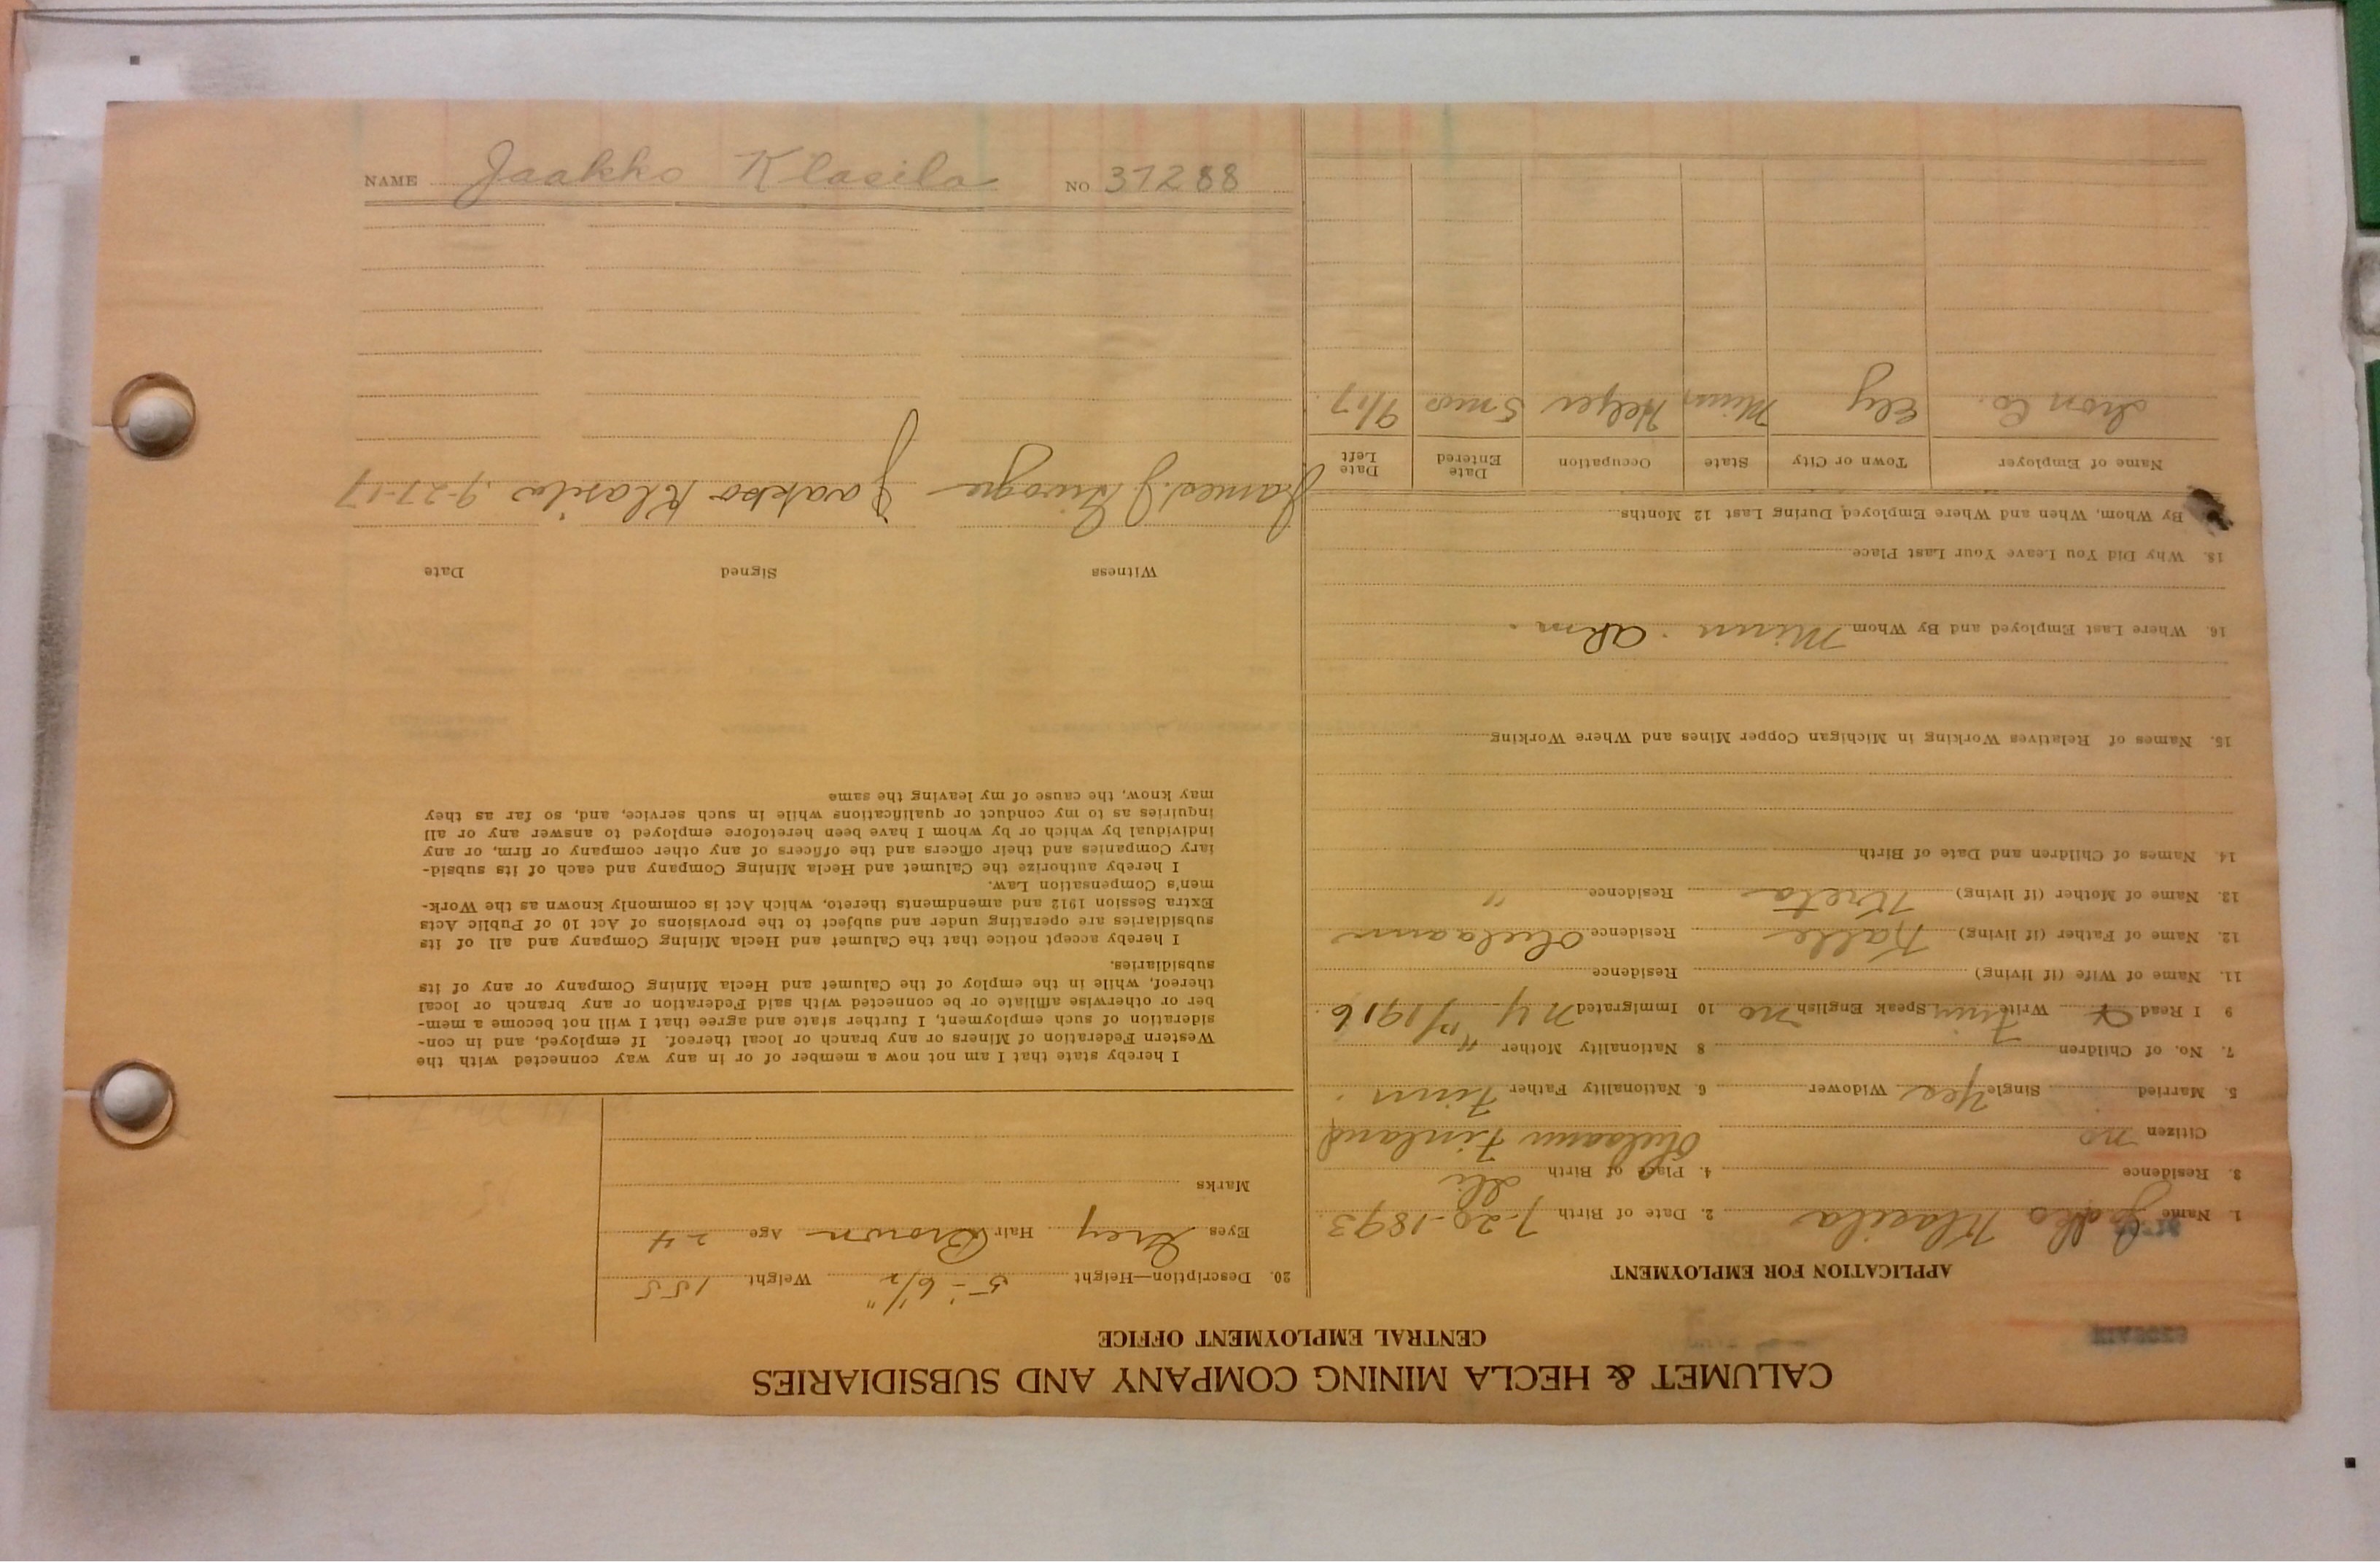 CALUMET & HECLA MINING COMPANY AND SUBSIDIARIES
CENTRAL EMPLOYMENT OFFICE
APPLICATION FOR EMPLOYMENT
1. Name Jaakko Klasila 2. Date of Birth 7-20-1893
3. Residence 4. Place of Birth Ii
Citizen no Oulaann Finland
5. Married Single Yes Widower 6. Nationality Father Finn.
7. No. of Children 8 Nationality Mother "
9 I Read & Write Finn Speak English no 10 Immigrated NY 1916
11. Name of Wife (if living) Residence
12. Name of Father (if living) Kalle Residence Oulaann
13. Name of Mother (if living) Kreta Residence "
14. Names of Children and Date of Birth
15. Names of Relatives Working in Michigan Copper Mines and Where Working
16. Where Last Employed and By Whom Minn.
18. Why Did You Leave Your Last Place
By Whom, When and Where Employed During Last 12 Months
Name of Employer Town or City State Occupation Date Entered Date Left
Iron Co. Ely Minn Helper 5 mos 9/17
20. Description—Height 5'-6½" Weight 155
Eyes Grey Hair Brown Age 24
Marks
I hereby state that I am not now a member of or in any way connected with the
Western Federation of Miners or any branch or local thereof. If employed, and in con-
sideration of such employment, I further state and agree that I will not become a mem-
ber or otherwise affiliate or be connected with said Federation or any branch or local
thereof, while in the employ of the Calumet and Hecla Mining Company or any of its
subsidiaries.
I hereby accept notice that the Calumet and Hecla Mining Company and all of its
subsidiaries are operating under and subject to the provisions of Act 10 of Public Acts
Extra Session 1912 and amendments thereto, which Act is commonly known as the Work-
men's Compensation Law.
I hereby authorize the Calumet and Hecla Mining Company and each of its subsid-
iary Companies and their officers and the officers of any other company or firm, or any
individual by which or by whom I have been heretofore employed to answer any or all
inquiries as to my conduct or qualifications while in such service, and, so far as they
may know, the cause of my leaving the same
Witness Signed Date
James J. Jaakko Klasila 9-27-17
NAME Jaakko Klasila NO 37288